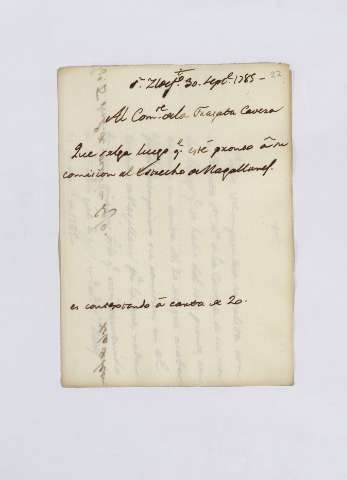 Sn. Yldefso. 30. Sepe. 1785.- 22
Al Comte. de la Fragata Caveza
Que salga luego qe. esté pronto â su
comision al Estrecho de Magallanes.
es contextando â carta de 20.